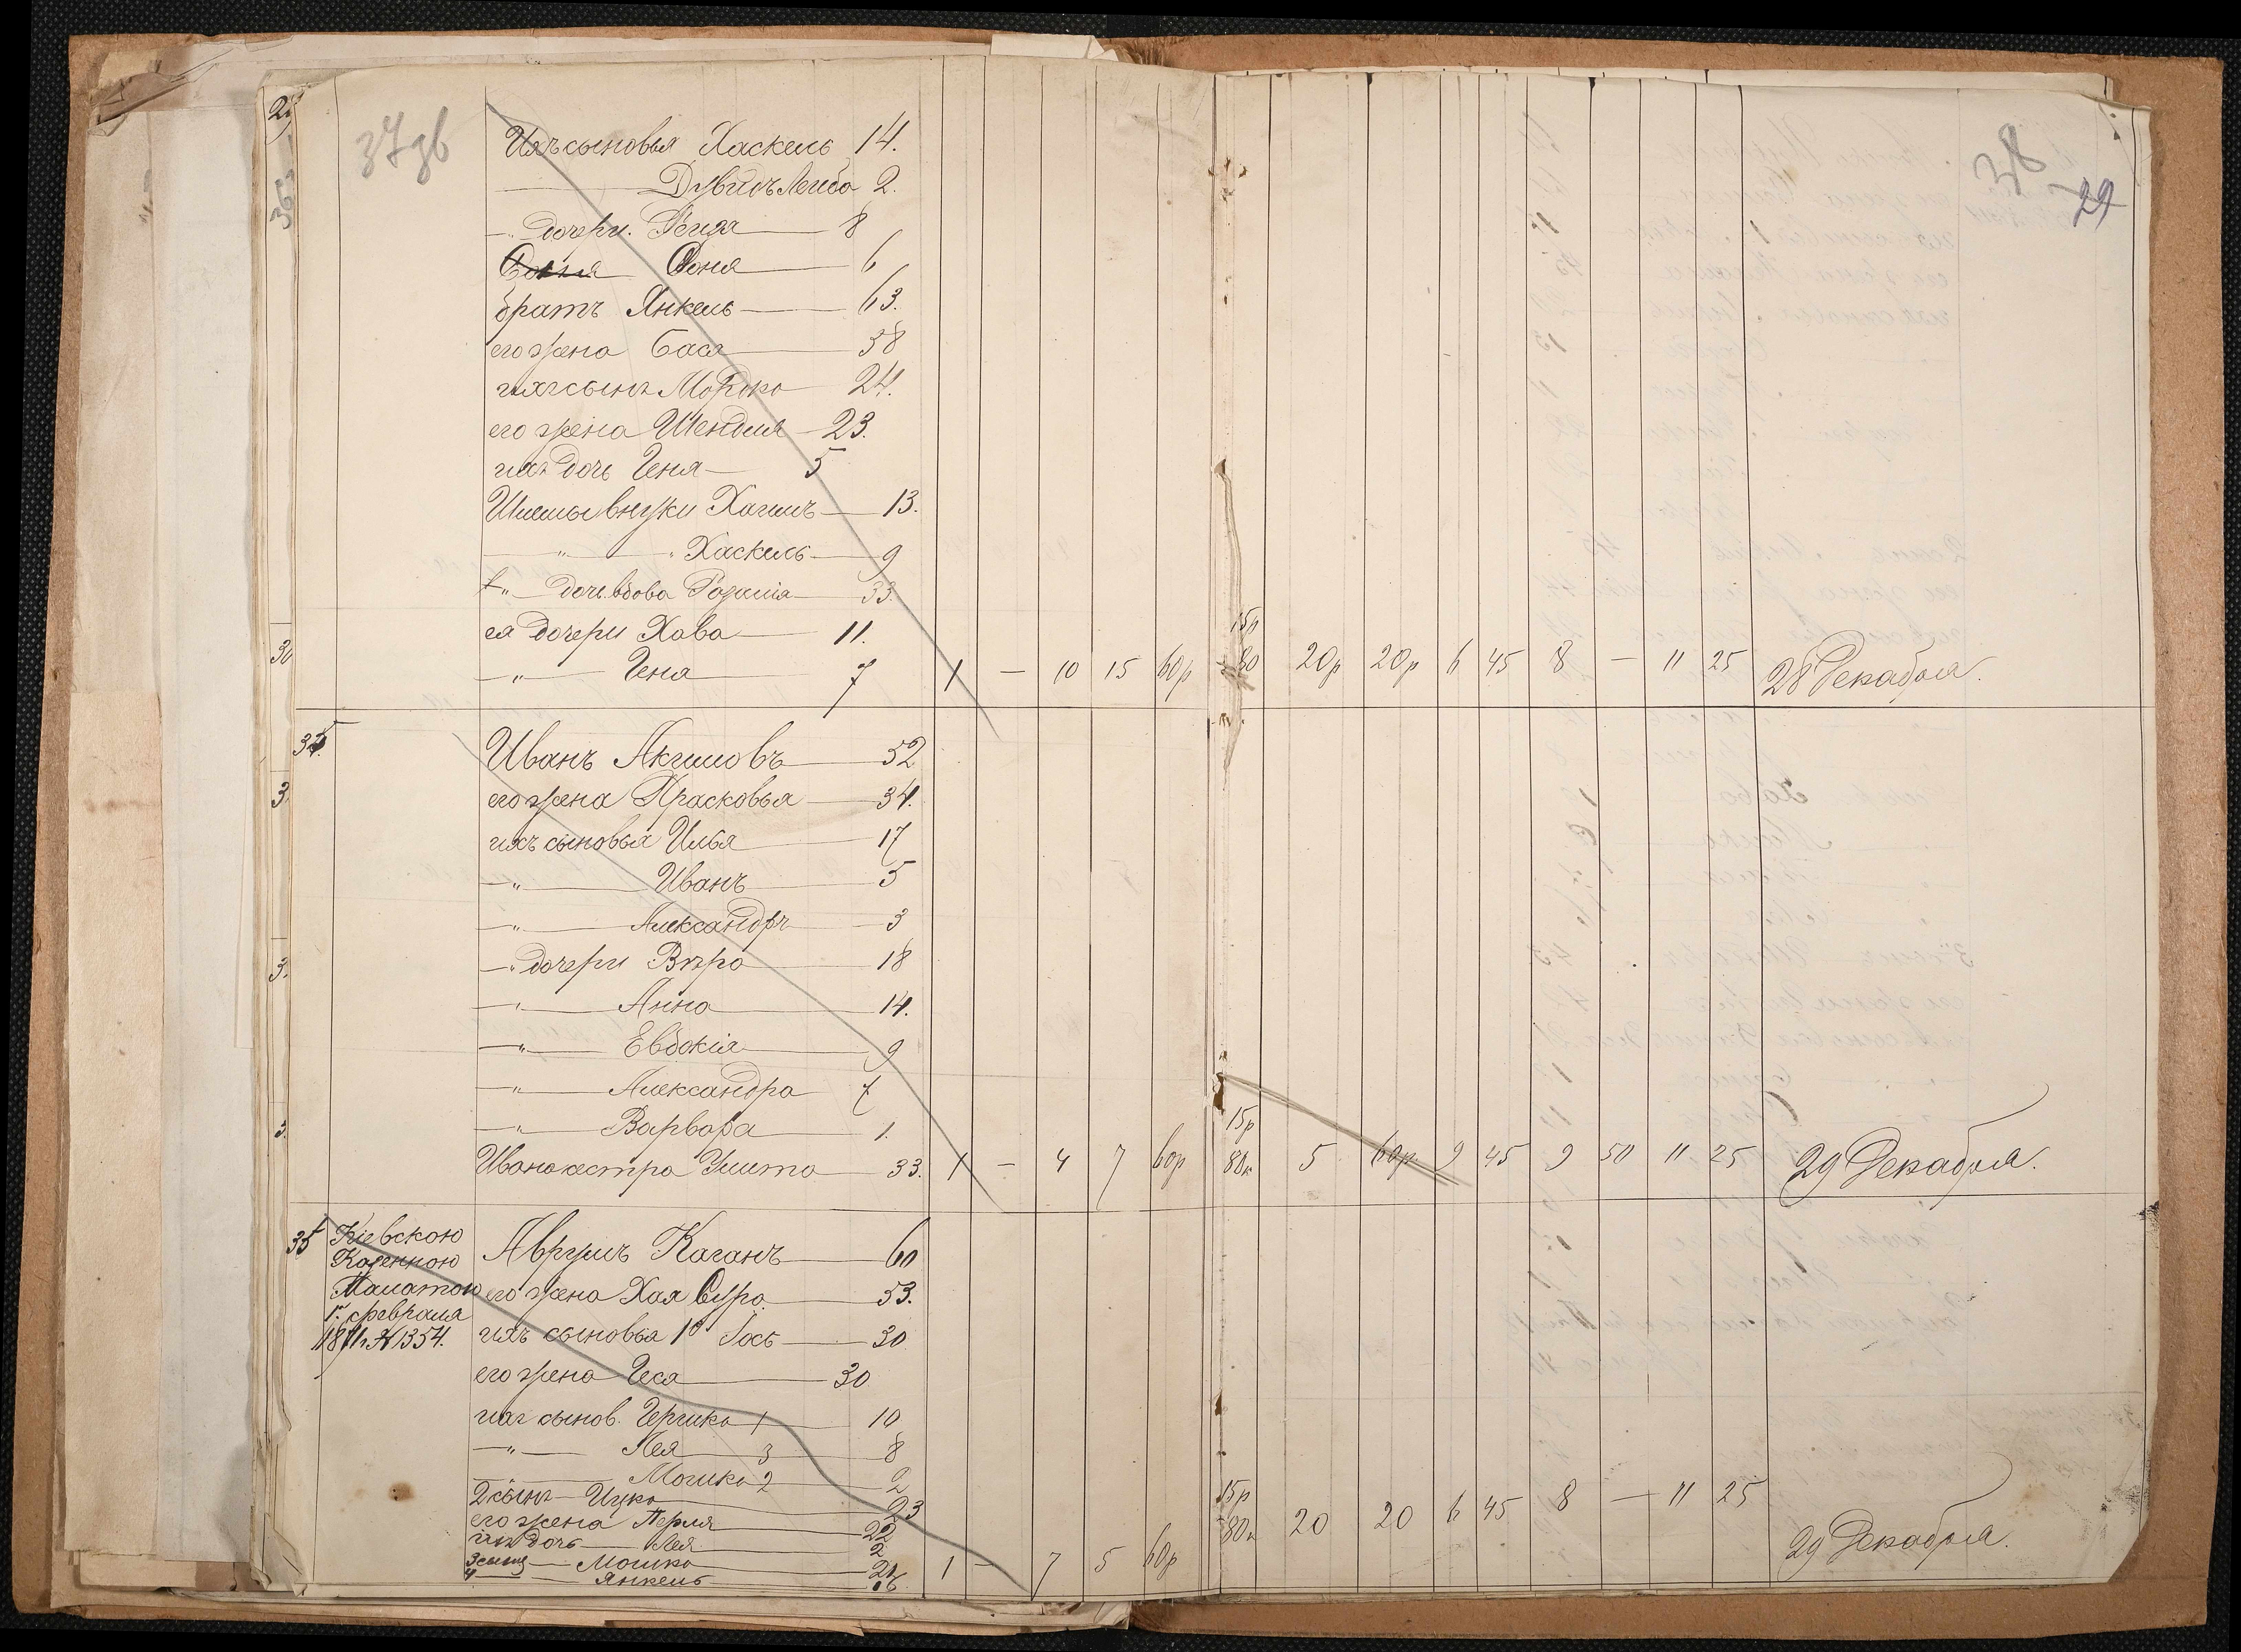 37 зв
38
29
Ихъ сыновья Хаскель 14.
Дувидъ Лейба 2.
-"- дочери. Рейзя 8
Соня 6
братъ Янкель 63.
его жена Бася 38
ихъ сынъ Мордко 24.
его жена Шендля 23.
ихъ дочь Геня 5
Шлемы внуки Хаимъ 13.
" " Хаскель 9
" дочь вдова Рузышя 33.
ея дочери Хава 11.
-"- Геня 7
1 - 10 15 60р 15р 80 20р 20р 6 45 8 - 11 25 28 Декабря.
34.
Иванъ Акимовъ 52
его жена Прасковья 34.
ихъ сыновья Илья 17
-"- Иванъ 5
-"- Александръ 3
-"- дочери Вѣра 18
-"- Анна 14.
-"- Евдокія 9
-"- Александра 7
-"- Варвара 1.
Ивана сестра Улита 33.
1 - 4 7 60р 15р 80к 5 60р. 9 45 9 50 11 25 29 Декабря.
35
Кіевскою
Казенною
Палатою
1. февраля
1871 г. № 1354.
Аврумъ Каганъ 60
его жена Хая Сура 53.
ихъ сыновья 1й Іось 30
его жена Геся 30
ихъ сынов. Гершко 1 10
-"- Лея 3 8
Мошко 2 2
2 сынъ Ицко 23
его жена Перля 22
ихъ дочь Лея 2
3 сынъ Мошко 21
4 Янкель 16
1 - 7 5 60р 15р 80к 20 20 6 45 8 - 11 25 29 Декабря.